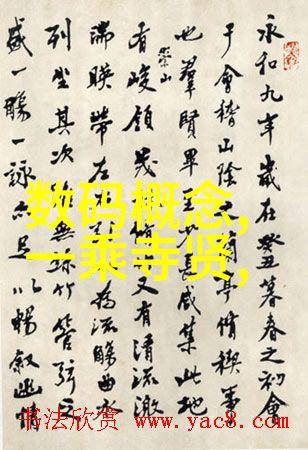 永和九年歲在癸丑暮春之初會
于會稽山陰亭脩稧事
也羣賢畢咸集此地
有崇山峻領茂又有清流激
湍暎帶左右為流觴曲水
列坐其次無絲竹管弦之
盛一觴一詠亦足以暢敘幽情
数码概念,
一乘寺贤,
书法欣赏 www.yac8.com